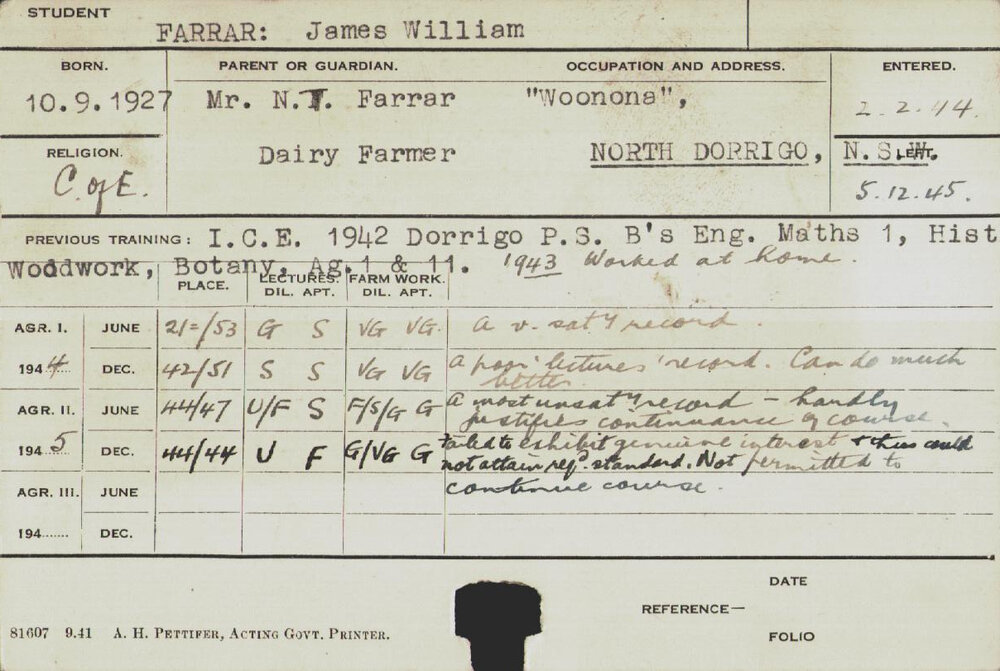 STUDENT
FARRAR: James William
BORN. PARENT OR GUARDIAN. OCCUPATION AND ADDRESS. ENTERED.
10.9.1927 Mr. N.T. Farrar "Woonona", 2.2.44.
RELIGION. Dairy Farmer NORTH DORRIGO, N.S.W. LEFT.
C. of E. 5.12.45.
PREVIOUS TRAINING: I.C.E. 1942 Dorrigo P.S. B's Eng. Maths 1, Hist
Woodwork, Botany, Ag.1 & 11. 1943 Worked at home.
PLACE. LECTURES. FARM WORK.
DIL. APT. DIL. APT.
AGR. I. JUNE 21=/53 G S VG VG. A v. sat'y record.
1944 DEC. 42/51 S S VG VG A poor 'lectures' record. Can do much
better.
AGR. II. JUNE 44/47 U/F S F/S/G G A most unsat'y record - hardly
justifies continuance of course.
1945 DEC. 44/44 U F G/VG G Failed to exhibit genuine interest & thus could
not attain reqd. standard. Not permitted to
AGR. III. JUNE continue course.
194...... DEC.
DATE
REFERENCE—
81607 9.41 A. H. PETTIFER, ACTING GOVT. PRINTER. FOLIO